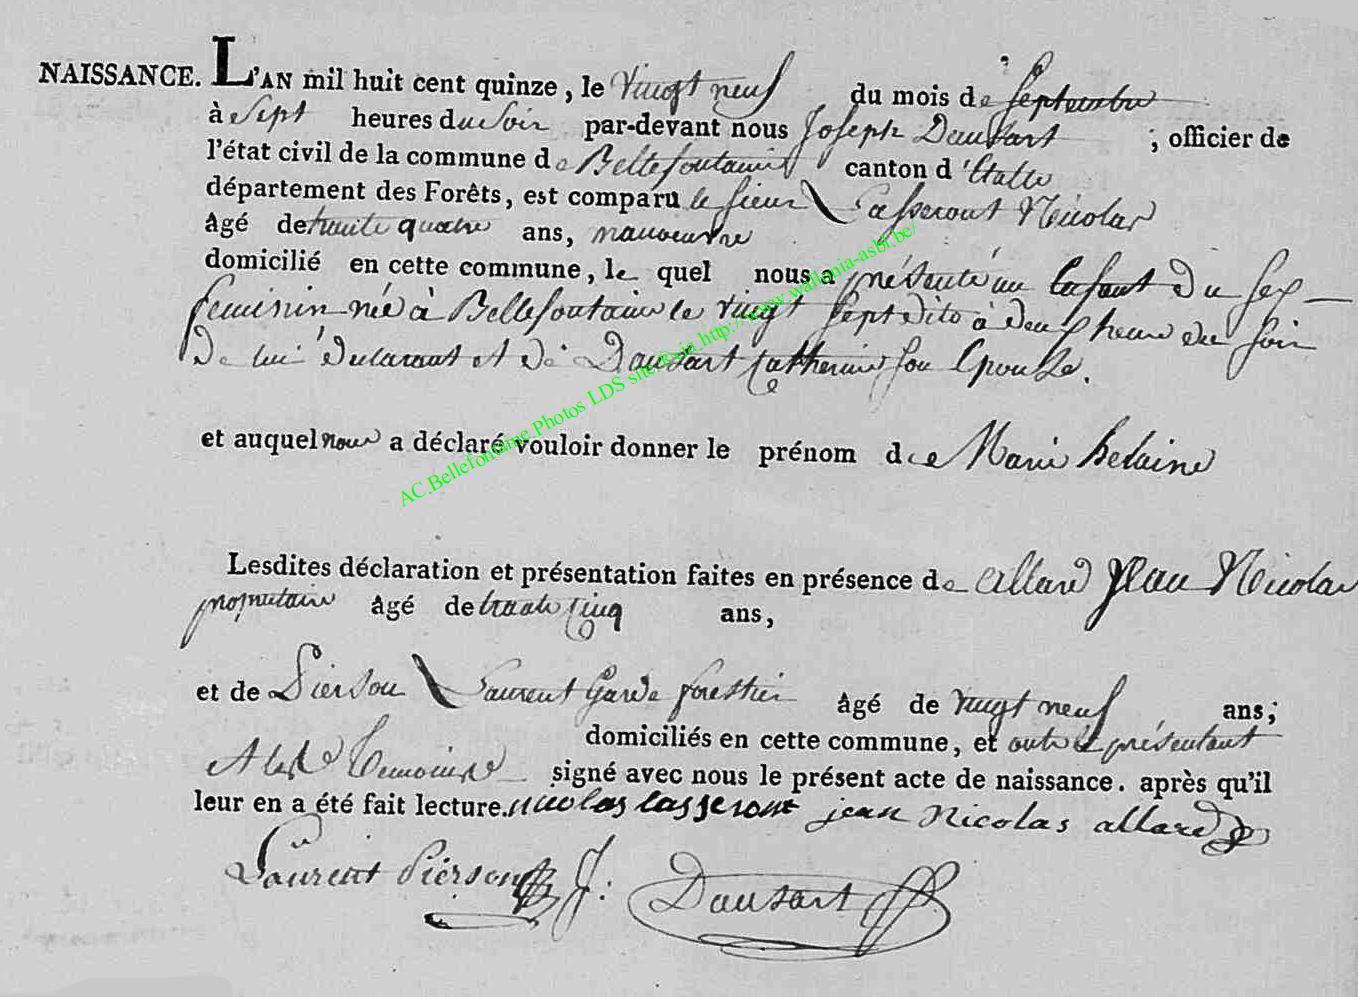 NAISSANCE. L'AN mil huit cent quinze, le vingt neuf du mois de septembre
à sept heures du soir par-devant nous Joseph Dausart ; officier de
l'état civil de la commune de Bellefontaine canton d'Etalle
département des Forêts, est comparu le sieur Lasseront Nicolas
âgé de trente quatre ans, manoeuvre
domicilié en cette commune, le quel nous a présenté un Enfant du sex
feminin née à Bellefontaine le vingt sept dito à deux heure du soir
De lui déclarant et de Dausart Catherine son Epouse.
et auquel nous a déclaré vouloir donner le prénom de Marie helaine
Lesdites déclaration et présentation faites en présence de allard Jean Nicolas
propriétaire âgé de trente cinq ans,
et de Pierson Laurent Garde forestier âgé de vingt neuf ans;
domiciliés en cette commune, et ont le présentant
et les témoins signé avec nous le présent acte de naissance. après qu'il
leur en a été fait lecture. nicolas lasseront jean Nicolas allard
Laurent Pierson J: Dausart
AC.Bellefontaine.Photos LDS site via http://www.wallonia-asbl.be/